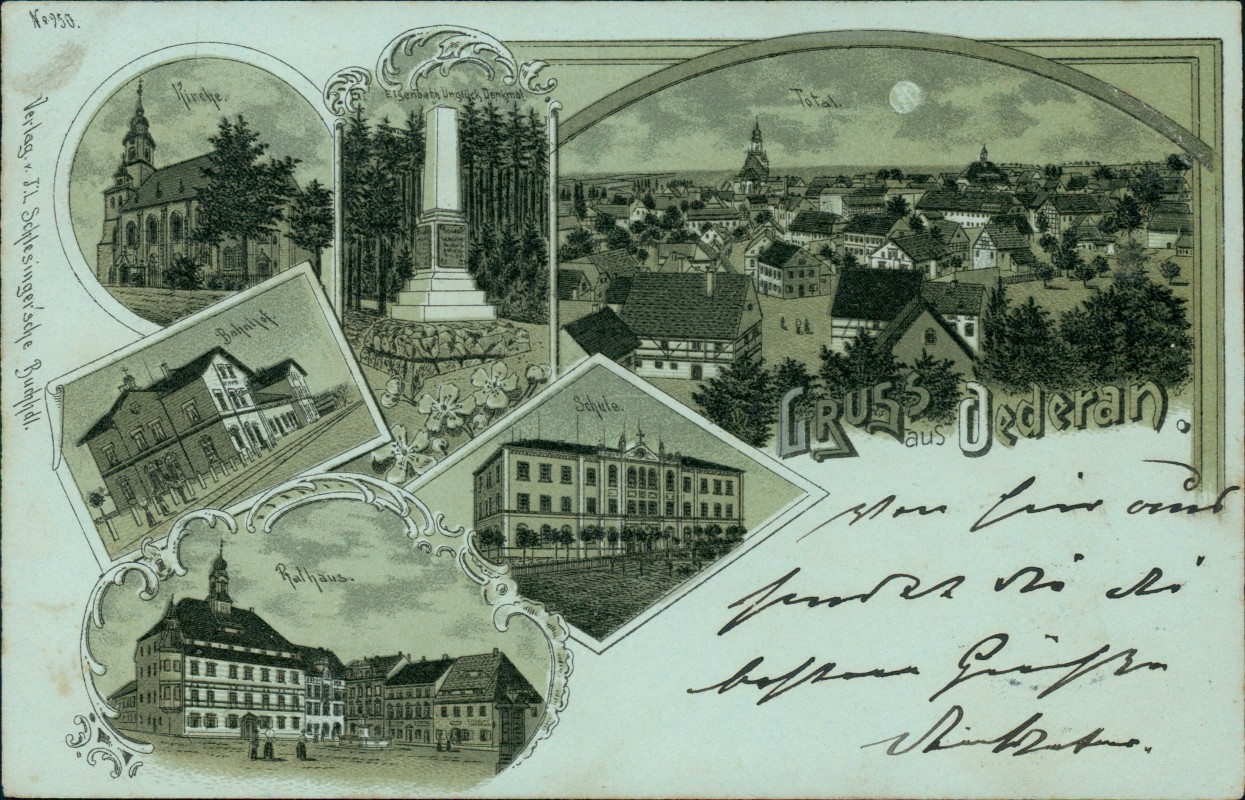 No 950.
Verlag v. F. L. Schlesinger'sche Buchhdl.
Kirche.
Eisenbahn Unglück Denkmal
Total.
Bahnhof.
Schule.
Rathaus.
Gruss aus Oederan.
Von hier aus
sendet die
besten Grüße